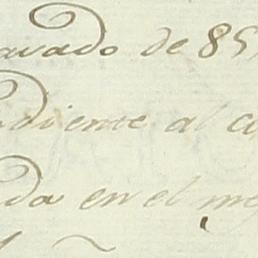 avado de 85
diente al c
da en el me